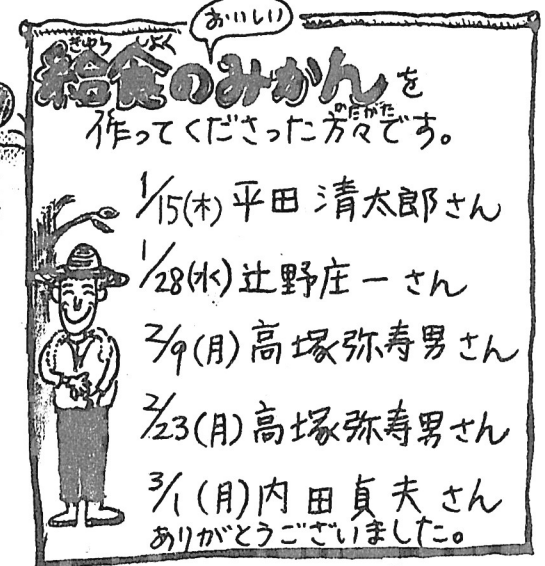 おいしい
きゅうしょく
給食のみかんを
のたがた
作ってくださった方々です。
1/15(木)平田清太郎さん
1/28(水)辻野庄一さん
2/9(月)高塚弥寿男さん
2/23(月)高塚弥寿男さん
3/1(月)内田貞夫さん
ありがとうございました。